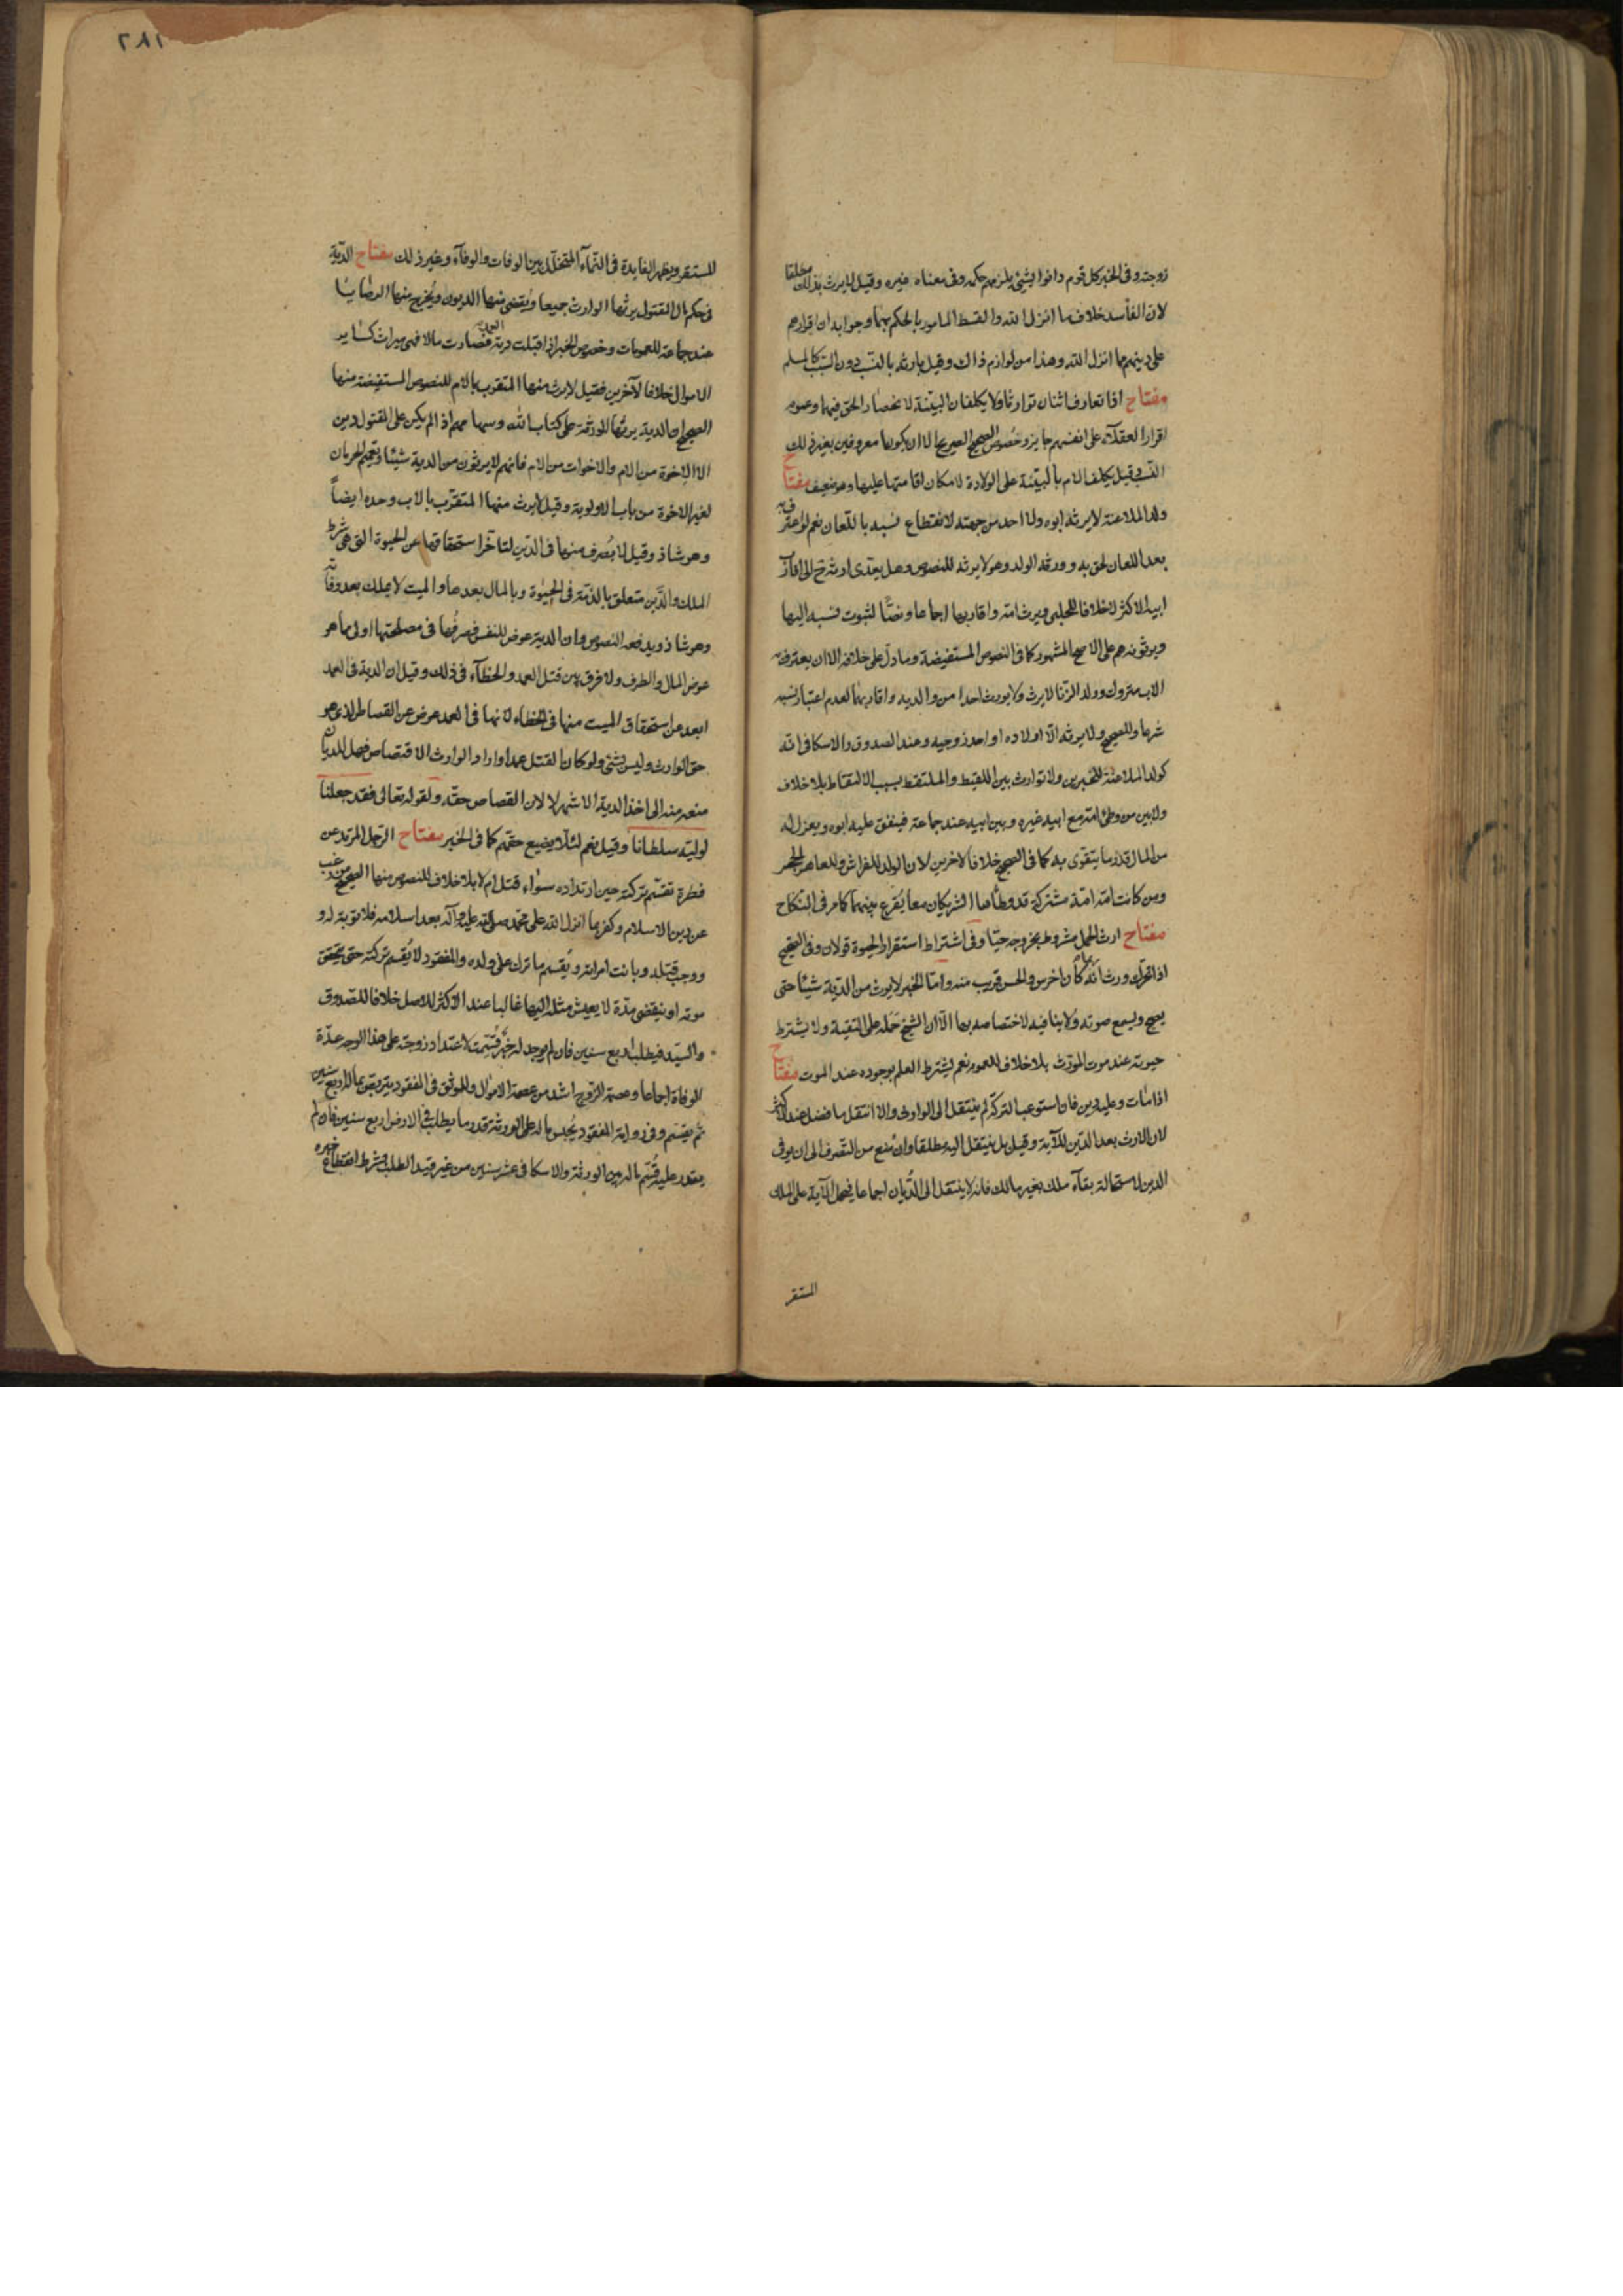 زوجته وفى الخبر كل قوم دانوا بشئ يلزمهم حكمه وفى معناه غيره وقيل لا يرث بذلك مطلقا
لان الفاسد خلاف ما انزل الله والقسط المامور بالحكم بهما وجوابه ان اقرارهم
على دينهم مما انزل الله وهذا من لوازم ذاك وقيل بارثه بالنسب دون السبب كالمسلم
مفتاح اذا تعارف اثنان توارثا ولا يكلفان البينة لانحصار الحق فيهما وعموم
اقرار العقلاء على انفسهم جايز وخصوص الصحيح الصريح الا ان يكونا معروفين بغير ذلك
النسب وقيل يكلف الام بالبينة على الولادة لامكان اقامتها عليها وهو ضعيف مفتاح
ولد الملاعنة لا يرثه ابوه ولا احد من جهته لانقطاع نسبه باللعان نعم لو اعترف به
بعد اللعان لحق به وورثه الولد وهو لا يرثه للنصوص وهل يتعدى ارثه ح الى اقارب
ابيه الاكثر لا خلافا للحلبى ويرث امه واقاربها اجماعا ونصا لثبوت نسبه اليها
ويرثونه هم على الاصح المشهور كما فى النصوص المستفيضة وما دل على خلافه الا ان يعترف به
الاب متروك وولد الزنا لا يرث ولا يورث احدا من والديه واقاربهما لعدم اعتبار نسبه
شرعا وللصحيح ولا يرثه الا اولاده او احد زوجيه وعند الصدوق والاسكافى انه
كولد الملاعنة للخبرين ولا توارث بين اللقيط والملتقط بسبب الالتقاط بلا خلاف
ولا بين من وطئ امه مع ابيه غيره وبين ابيه عند جماعة فينفق عليه ابوه ويعزل له
من المال قدر ما يتقوى به كما فى الصحيح خلافا لاخرين لان الولد للفراش وللعاهر الحجر
ومن كانت امه امة مشتركة قد وطأها الشريكان معا يقرع بينهما كما مر فى النكاح
مفتاح ارث الحمل مشروط بخروجه حيا وفى اشتراط استقرار الحيوة قولان وفى الصحيح
اذا تحرك ورث انه ربما كان اخرس والحسن قريب منه واما الخبر لا يورث من الدية شيئا حتى
يصيح ويسمع صوته فلا ينافيه لاختصاصه بها الا ان الشيخ حمله على التقية ولا يشترط
حيوته عند موت المورث بلا خلاف للعموم نعم يشترط العلم بوجوده عند الموت مفتاح
اذا مات وعليه دين فان استوعب التركة لم ينتقل الى الوارث والا انتقل ما فضل عند الاكثر
لان الارث بعد الدين للآية وقيل بل ينتقل اليه مطلقا وان منع من التصرف الى ان يوفى
الدين لاستحالة بقاء ملك بغير مالك فانه لا ينتقل الى الديان اجماعا فيحمل الآية على الملك
المستقر
٢٨١
المستقر ويظهر الفايدة فى النماء المتخلل بين الوفات والوفاء وغير ذلك مفتاح الدية
فى حكم مال المقتول يرثها الوارث جميعا ويقضى منها الديون ويخرج منها الوصايا
عند جماعة للعمومات وخصوص الخبر اذا قبلت دية العمد فصارت مالا فهى ميراث كساير
الاموال خلافا لآخرين فقيل لا يرث منها المتقرب بالام للنصوص المستفيضة منها
الصحيح ان الدية يرثها الورثة على كتاب الله وسهامهم اذا لم يكن على المقتول دين
الا الاخوة من الام والاخوات من الام فانهم لا يرثون من الدية شيئا وتعميم الحرمان
لغير الاخوة من باب الاولوية وقيل لا يرث منها المتقرب بالاب وحده ايضا
وهو شاذ وقيل لا يصرف منها فى الدين لتاخر استحقاقها عن الحيوة التى هى شرط
الملك والدين متعلق بالذمة فى الحيوة وبالمال بعدها والميت لا يملك بعد وفاته
وهو شاذ ويدفعه النصوص وان الدية عوض للنفس فصرفها فى مصلحتها اولى مما هو
عوض المال والطرف ولا فرق بين قتل العمد والخطأء فى ذلك وقيل ان الدية فى العمد
ابعد عن استحقاق الميت منها فى الخطاء لانها فى العمد عوض عن القصاص الذى هو
حق الوارث وليس بشئ ولو كان القتل عمدا واراد الوارث الاقتصاص فهل للديان
منعه منه الى اخذ الدية الاشهر لا لان القصاص حقه ولقوله تعالى فقد جعلنا
لوليه سلطانا وقيل نعم لئلا يضيع حقهم كما فى الخبر مفتاح الرجل المرتد عن
فطرة تقسم تركته حين ارتداده سواء قتل ام لا بلا خلاف للنصوص منها الصحيح من رغب
عن دين الاسلام وكفر بما انزل الله على محمد صلى الله عليه وآله بعد اسلامه فلا توبة له و
ووجب قتله وبانت امراته ويقسم ما ترك على ولده والمفقود لا يقسم تركته حتى يتحقق
موته او ينقضى مدة لا يعيش مثله اليها غالبا عند الاكثر للاصل خلافا للصدوق
والسيد فيطلب اربع سنين فان لم يوجد له خبر قسمت لاعتداد زوجته على هذا الوجه عدة
الوفاة اجماعا وعصمة الزوج اشد من عصمة الاموال وللموثق فى المفقود يتربص بماله اربع سنين
ثم يقسم وفى رواية المفقود يحبس ماله على الورثة قدر ما يطلب فى الارض اربع سنين فان لم
يقدر عليه قسم ماله بين الورثة والاسكافى عشر سنين من غير قيد الطلب وشرط انقطاع خبره